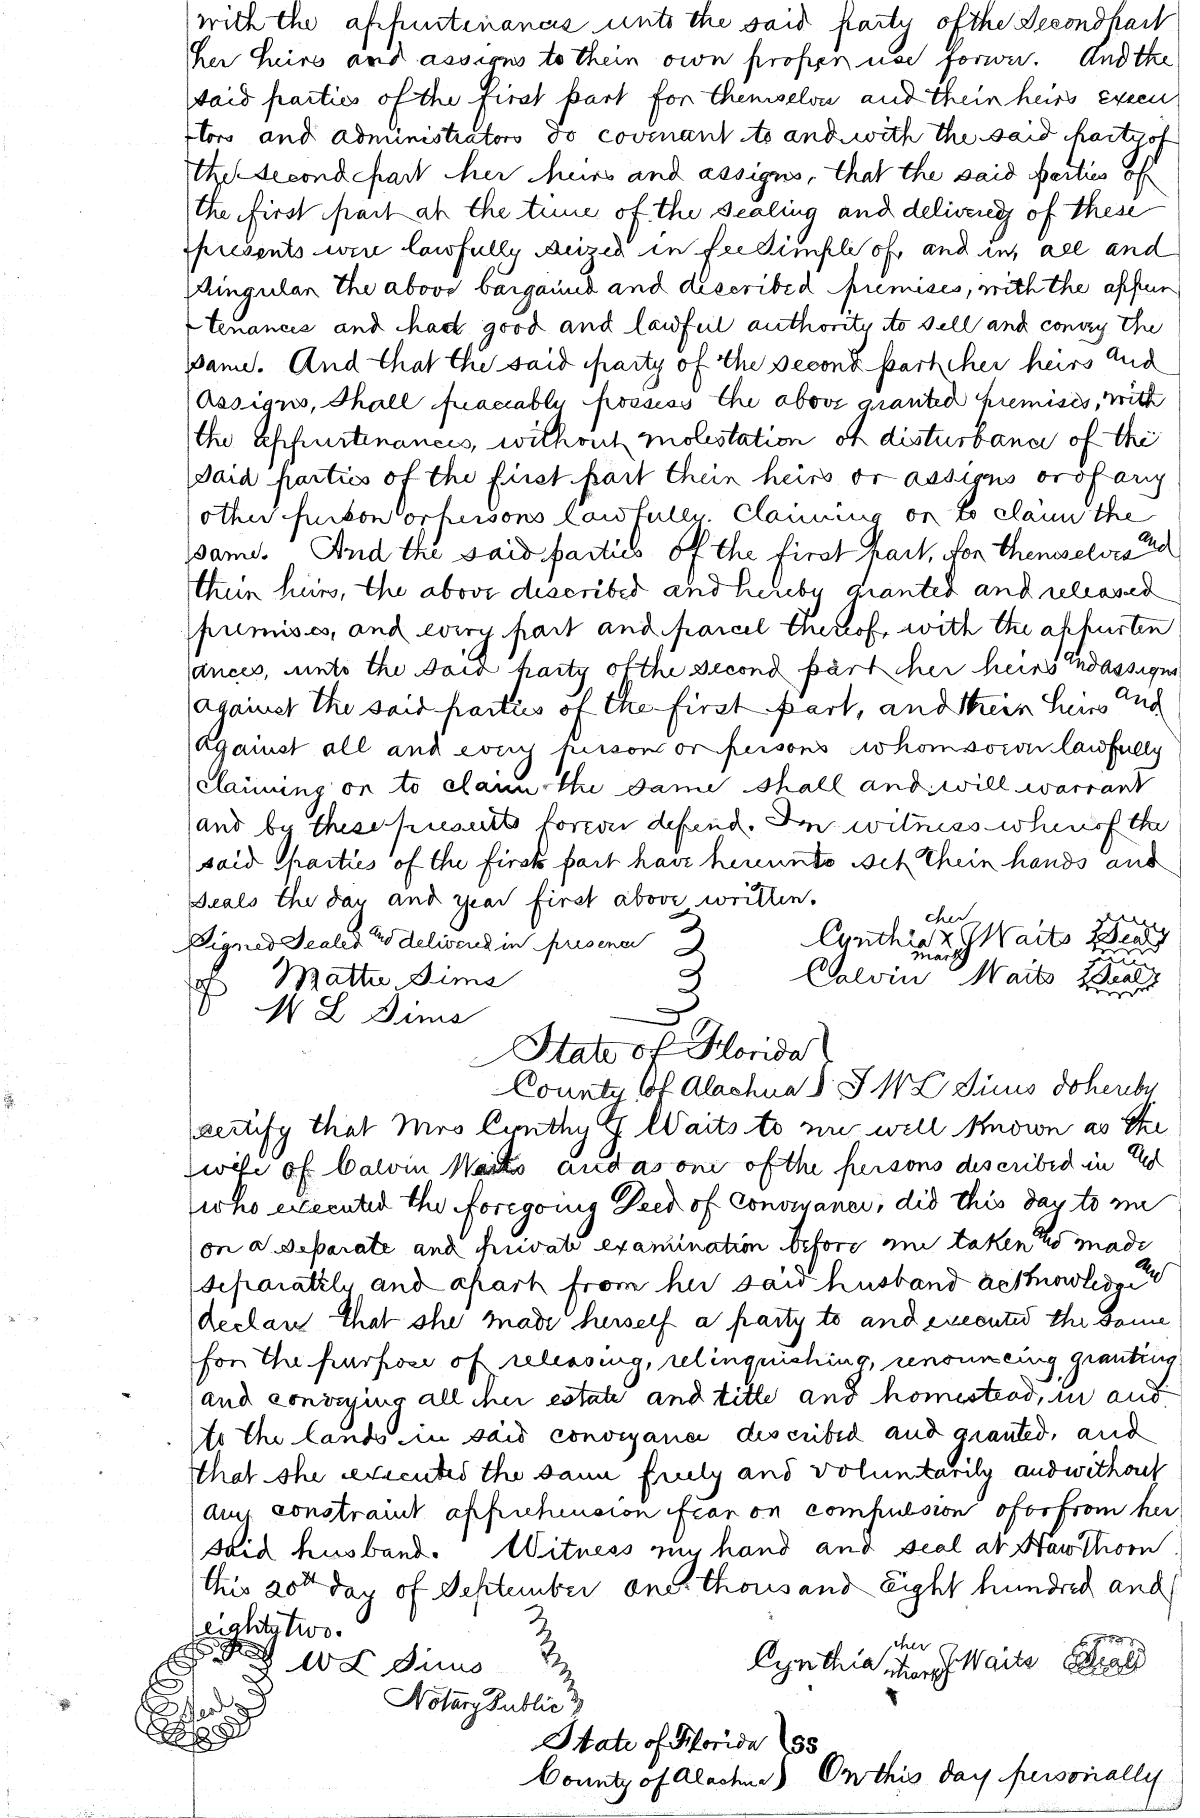 with the appurtenances unto the said party of the Second part
her heirs and assigns to their own proper use forever. And the
said parties of the first part for themselves and their heirs execu
tors and administrators do covenant to and with the said party of
the second part her heirs and assigns, that the said parties of
the first part at the time of the sealing and delivery of these
presents were lawfully seized in fee Simple of, and in, all and
singular the above bargained and described premises, with the appur
tenances and had good and lawful authority to sell and convey the
same. And that the said party of the second part her heirs and
assigns, shall peaceably possess the above granted premises, with
the appurtenances, without molestation or disturbance of the
said parties of the first part their heirs or assigns or of any
other person or persons lawfully. Claiming or to claim the
same. And the said parties of the first part, for themselves and
their heirs, the above described and hereby granted and released
premises, and every part and parcel thereof, with the appurten
ances, unto the said party of the second part her heirs and assigns
against the said parties of the first part, and their heirs and
against all and every person or persons whomsoever lawfully
claiming or to claim the same shall and will warrant
and by these presents forever defend. In witness whereof the
said parties of the first part have hereunto set their hands and
seals the day and year first above written.
Signed Sealed and delivered in presence
of Mattie Sims
W L Sims
her
Cynthia x J Waits Seal
mark
Calvin Waits Seal
State of Florida
County of Alachua } I W L Sims do hereby
certify that Mrs Cynthy J Waits to me well known as the
wife of Calvin Waits and as one of the persons described in and
who executed the foregoing Deed of Conveyance, did this day to me
on a separate and private examination before me taken and made
separately and apart from her said husband acknowledge and
declare that she made herself a party to and executed the same
for the purpose of releasing, relinquishing, renouncing granting
and conveying all her estate and title and homestead, in and
to the lands in said conveyance described and granted, and
that she executed the same freely and voluntarily and without
any constraint apprehension fear or compulsion of or from her
said husband. Witness my hand and seal at Hawthorn
this 20th day of September one thousand Eight hundred and
eighty two.
Seal W L Sims
Notary Public
her
Cynthia J Waits Seal
mark
State of Florida } SS
County of Alachua } On this day personally